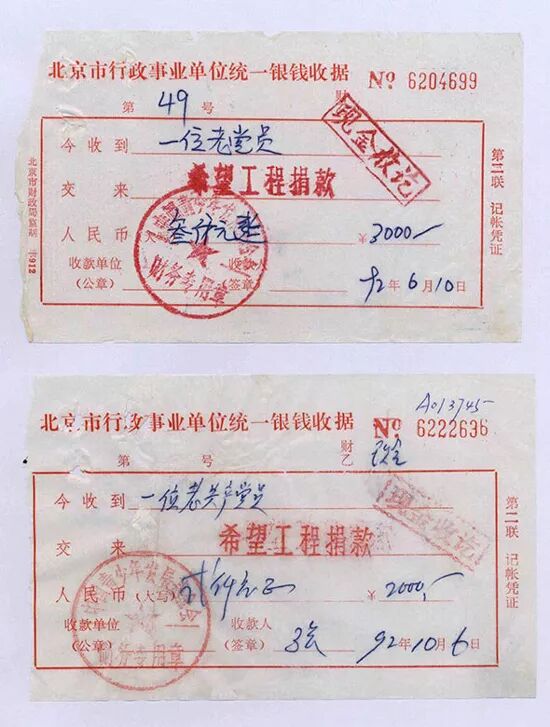 北京市行政事业单位统一银钱收据 No 6204699
第 49 号 财
现金收讫
今收到 一位老党员
交来 希望工程捐款
人民币(大写) 叁仟元正 ¥3000-
收款单位(公章) 收款人(签章) 92年6月10日
财务专用章
第二联 记帐凭证
北京市财政局监制
A013745
北京市行政事业单位统一银钱收据 No 6222636
第 号 财乙
现金收讫
今收到 一位老共产党员
交来 希望工程捐款
人民币(大写) 贰仟元正 ¥2000-
收款单位(公章) 收款人(签章) 92年10月6日
中国青少年发展基金会
财务专用章
第二联 记帐凭证